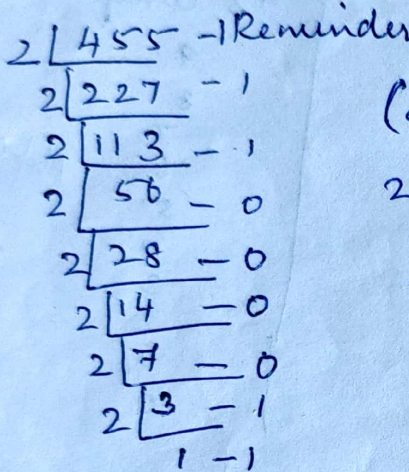 2 455 -1 Reminder
2 227 - 1
2 113 - 1
2 56 - 0
2 28 - 0
2 14 - 0
2 7 - 0
2 3 - 1
1 - 1
(
2